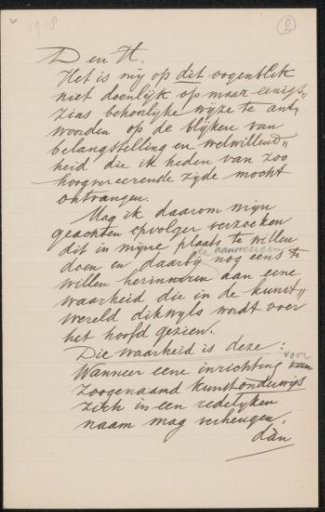 1918
2
D en H.
Het is mij op dit oogenblik
niet doenlijk op maar eenigs„
zins behoorlijke wijze te ant„
woorden op de blijken van
belangstelling en welwillend„
heid die ik heden van zoo
hoogvereerende zijde mocht
ontvangen.
Mag ik daarom mijn
geachten opvolger verzoeken
dit in mijne plaats te willen
de aanwezigen
doen en daarbij nog eens te
willen herinneren aan eene
waarheid die in de kunst„
wereld dikwijls wordt voor
het hoofd gezien.
Die waarheid is deze:
voor
Wanneer eene inrichting van
zoogenaamd kunstonderwijs
zich in een redelijken
naam mag verheugen,
dan